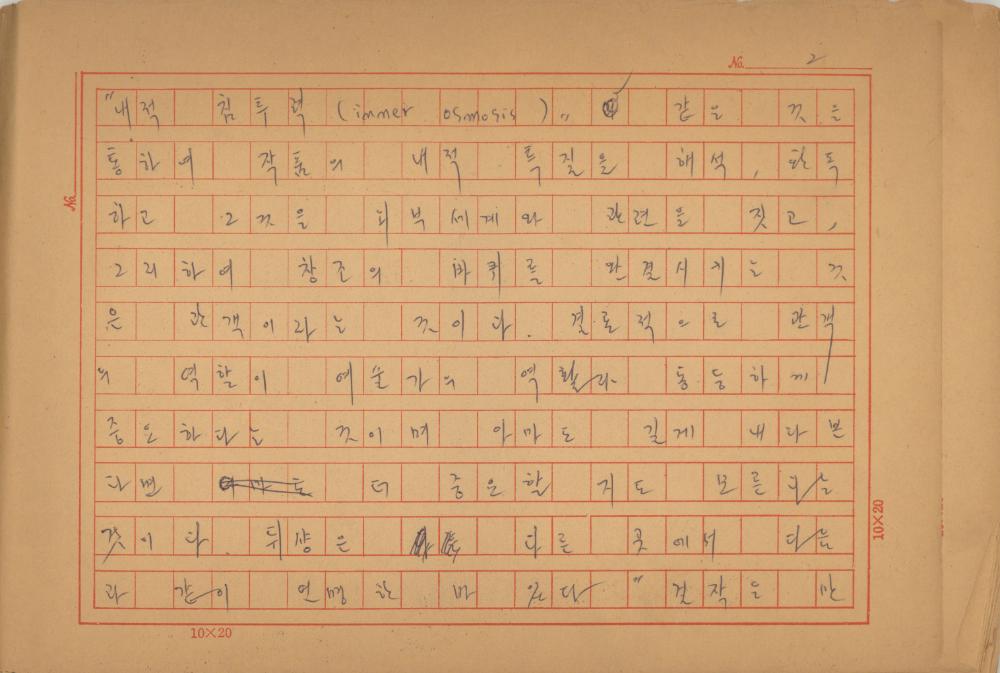 No. 2
"내적 침투력 (inner osmosis)„ 같은 것을
통하여 작품의 내적 특질을 해석, 판독
하고 그것을 외부세계와 관련을 짓고,
그리하여 창조의 바퀴를 완결시키는 것
은 관객이라는 것이다. 결론적으로 관객
의 역할이 예술가의 역활과 동등하게
중요하다는 것이며 아마도 길게 내다본
다면 더 중요할 지도 모른다는
것이다. 뒤샹은 다른 곳에서 다음
과 같이 언명한 바 있다 "걸작을 만
No.
10×20
10×20